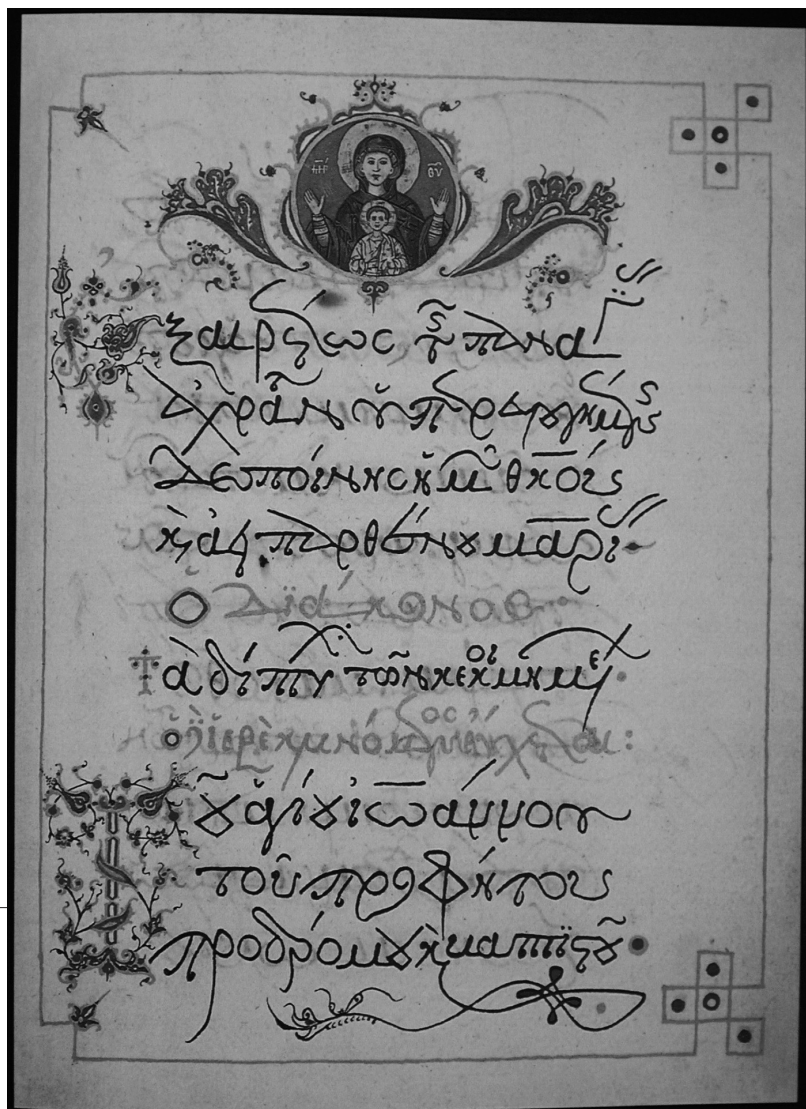 ΜΗΡ ΘΥ
Ἐξαιρέτως τῆς παναγίας
ἀχράντου ὑπερευλογημένης
Δεσποίνης ἡμῶν θκου
καὶ ἀειπαρθένου μαρίας
Ὁ Διάκονος
Τὰ δίπτυχα τῶν κεκοιμημένων
ὁ ἱερεὺς
Τοῦ ἁγίου ἰωάννου
τοῦ προφήτου
προδρόμου καὶ βαπτιστοῦ